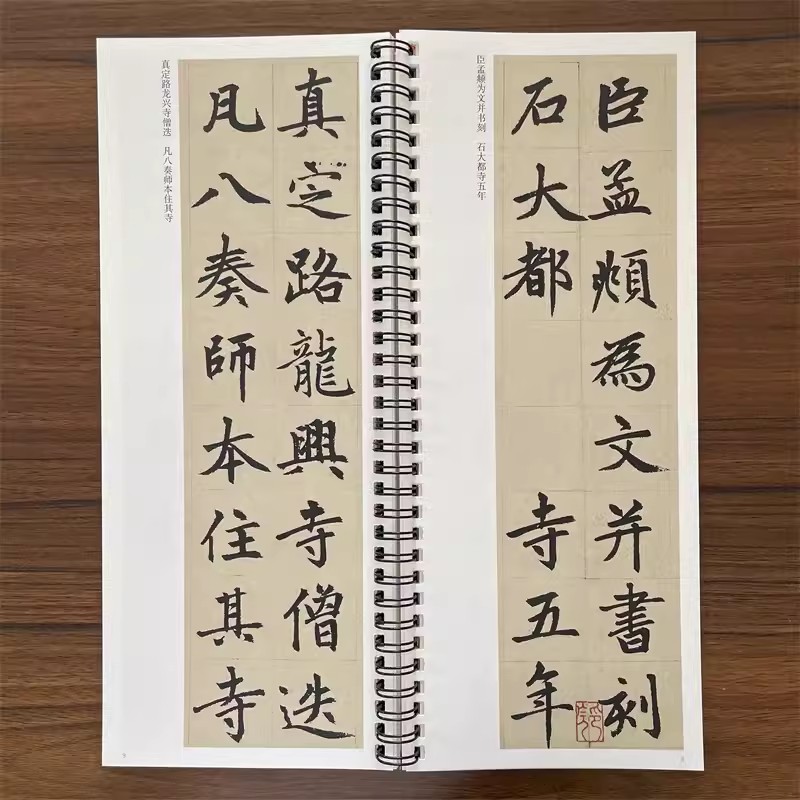 臣孟頫為文并書刻
石大都 寺五年
臣孟頫为文并书刻 石大都寺五年
真定路龍興寺僧迭
凡八奏師本住其寺
真定路龙兴寺僧迭 凡八奏师本住其寺